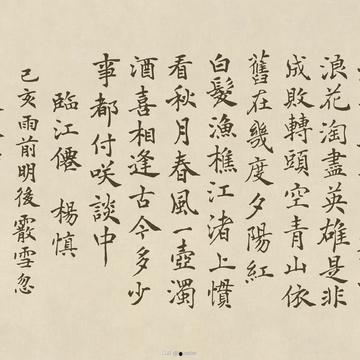 浪花淘盡英雄是非
成敗轉頭空青山依
舊在幾度夕陽紅
白髮漁樵江渚上慣
看秋月春風一壺濁
酒喜相逢古今多少
事都付咲談中
臨江僊 楊慎
己亥雨前明後霰雪忽